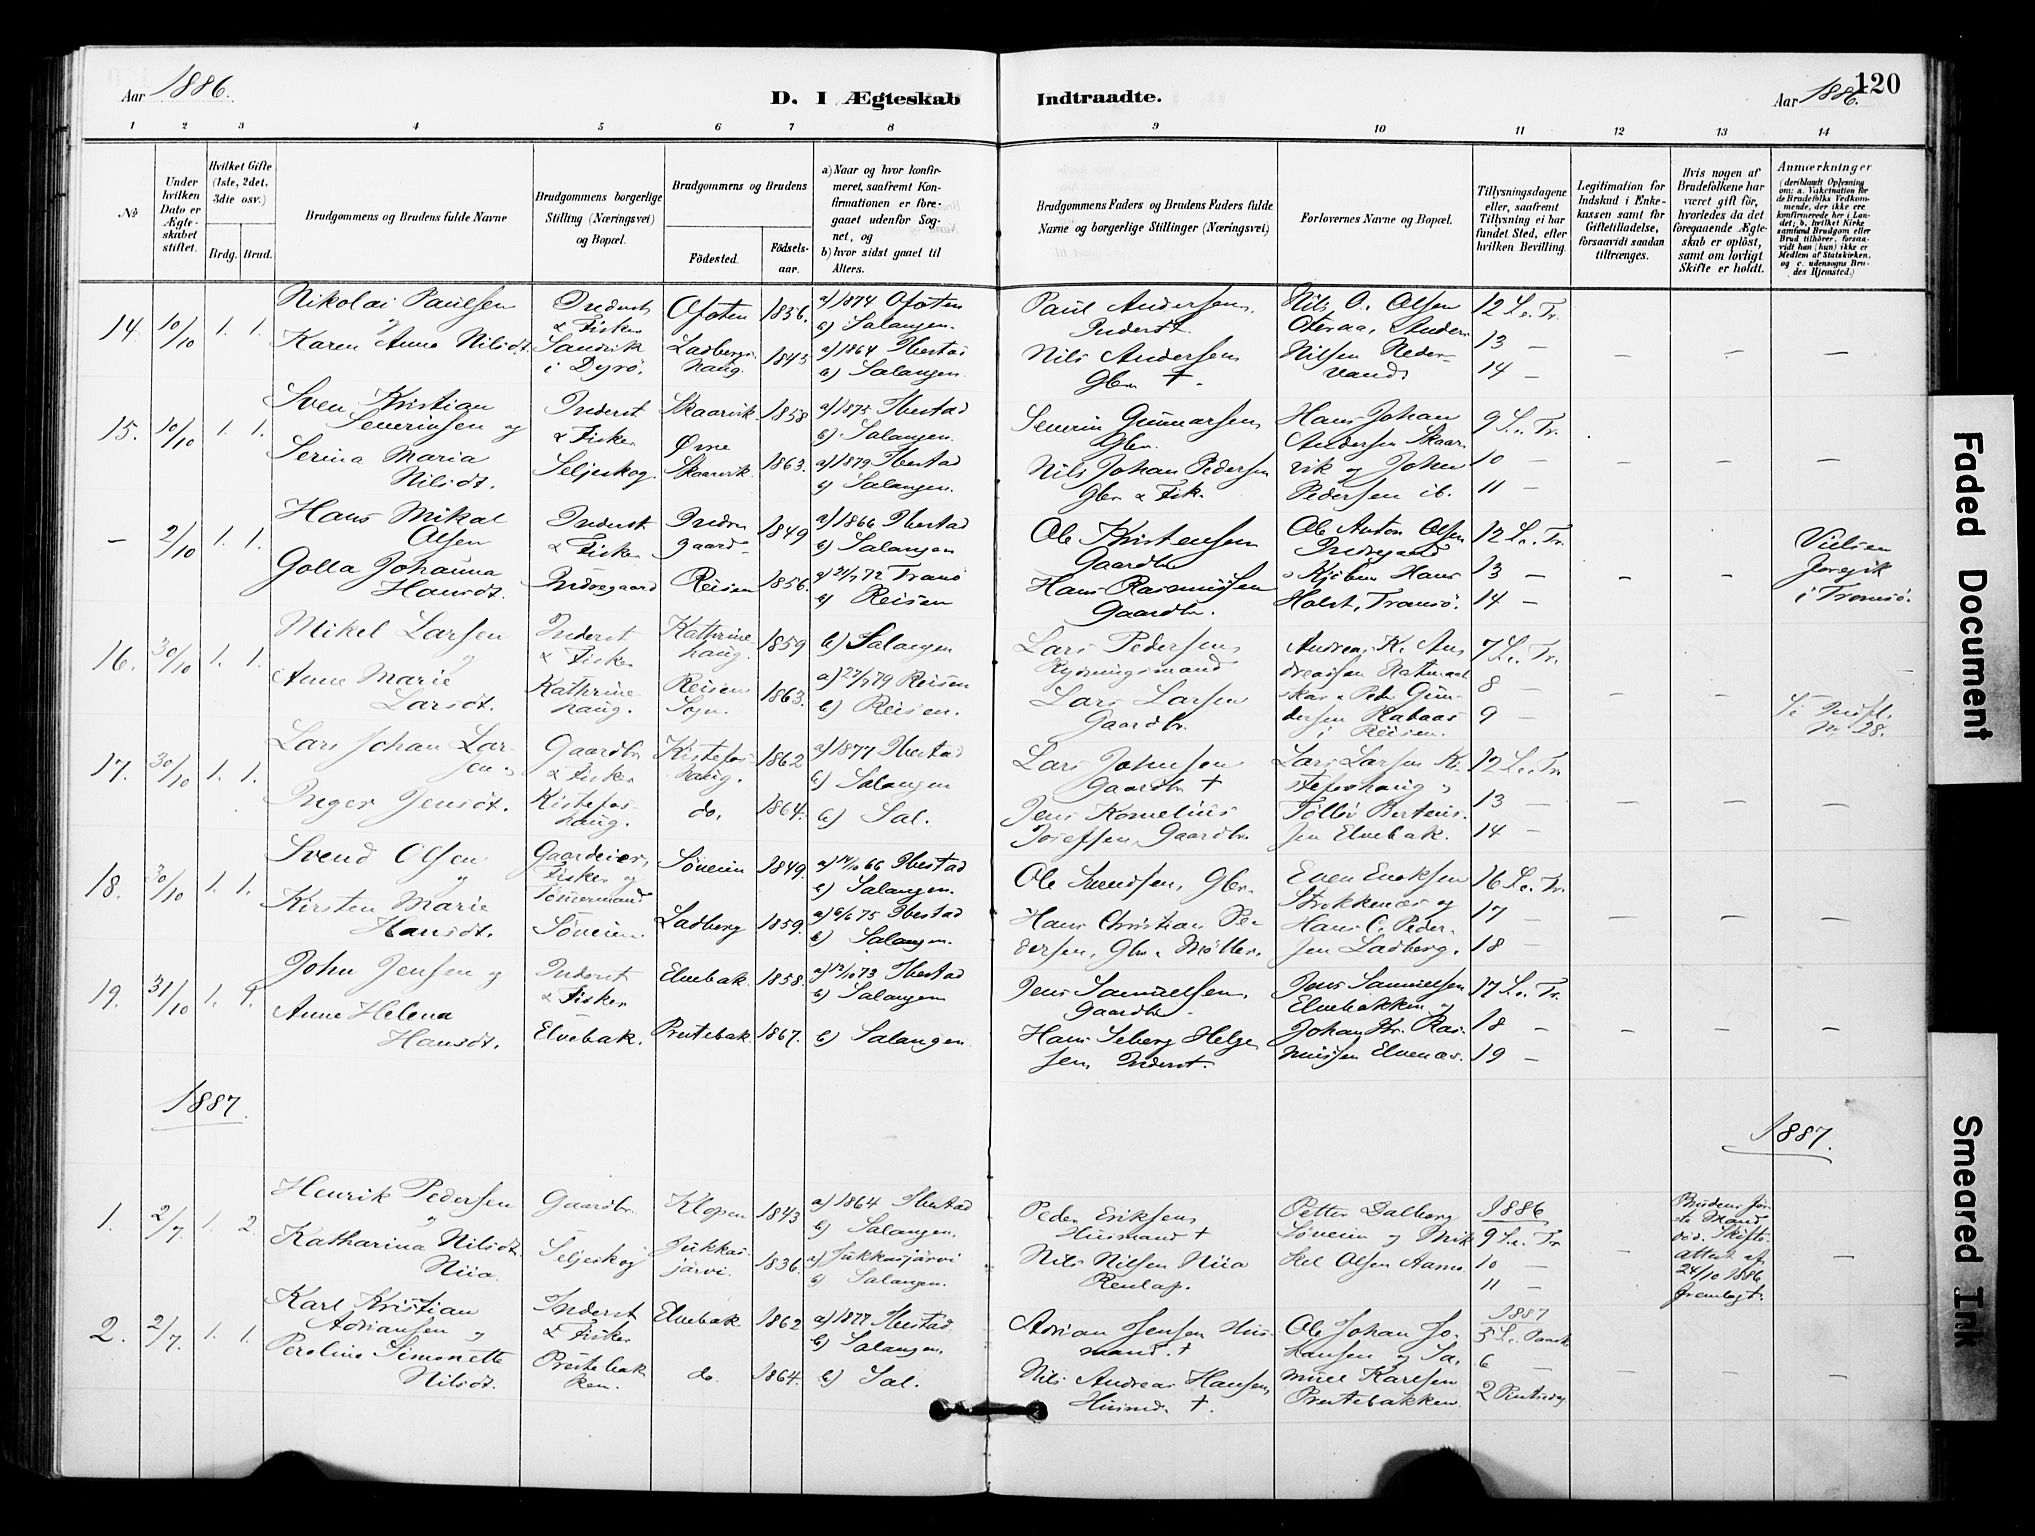 120
Aar 1886.
D. I Ægteskab Indtraadte.
Aar 1886.
1 2 3 4 5 6 7 8 9 10 11 12 13 14
No
Under hvilken Dato er Ægteskabet stiftet.
Hvilket Gifte (1ste, 2det, 3die osv.)
Brdg. Brud.
Brudgommens og Brudens fulde Navne
Brudgommens borgerlige Stilling (Næringsvei) og Bopæl.
Brudgommens og Brudens
Födested.
Födselsaar.
a) Naar og hvor konfirmeret, saafremt Konfirmationen er foregaaet udenfor Sognet, og
b) hvor sidst gaaet til Alters.
Brudgommens Faders og Brudens Faders fulde Navne og borgerlige Stillinger (Næringsvei)
Forlovernes Navne og Bopæl.
Tillysningsdagene eller, saafremt Tillysning ei har fundet Sted, efter hvilken Bevilling.
Legitimation for Indskud i Enkekassen samt for Giftetilladelse, forsaavidt saadan tiltrænges.
Hvis nogen af Brudefolkene har været gift før, hvorledes da det foregaaende Ægteskab er opløst, samt om lovligt Skifte er holdt.
Anmærkninger
(deriblandt Oplysning om: a. Vakcination for de Brudefolks Vedkommende, der ikke ere konfirmerede her i Landet; b. hvilket Kirkesamfund Brudgom eller Brud tilhører, forsaavidt han (hun) ikke er Medlem af Statskirken, og c. udensogns Brudes Hjemsted.)
14. 10/10 1. 1. Nikolai Paulsen og Inderst & Fisker Ofoten 1836. a) 1874 Ofoten b) Salangen. Paul Andersen, Inderst. Nils O. Olsen Oteraa, Anders 12 S. e. Tr. 13 —
Karen Anna Nilsdt. Sandvik i Dyrö. Ladberghaug. 1845 a) 1864 Ibestad b) Salangen. Nils Andersen Gbr. † Nilsen Nedervand. 14 —
15. 10/10 1. 1. Sven Kristian Severinsen og Inderst & Fisker Skaarvik 1858 a) 1875 Ibestad b) Salangen. Severin Gunnarsen, Gbr. Hans Johan Andersen Skaar 9 S. e. Tr. 10 —
Serina Maria Nilsdt. Seljeskog. Øvre Skaarvik. 1863. a) 1879 Ibestad b) Salangen. Nils Johan Pedersen Gbr & Fisk. vik og Johan Pedersen ib. 11 —
— 2/10 1. 1. Hans Mikal Olsen Inderst & Fisker Indregaard 1849 a) 1866 Ibestad b) Salangen Ole Kristensen Gaardbr Ole Anton Olsen Indregaard 12 S. e. Tr. 13 —
Golla Johanna Hansdt. Indregaard Reisen 1856. a) 21/7 72 Tranö b) Reisen Hans Rasmussen Gaardbr. & Kjöbm Hans Holst, Tromsö. 14 — Vielsen foregik i Tromsö.
16. 30/10 1. 1. Mikel Larsen og Inderst & Fisker Kathrinehaug. 1859 b) Salangen Lars Pedersen, Rydningsmand Andreas K. Andreassen 7 S. e. Tr. 8 —
Anne Marie Larsdt. Kathrinehaug. Reisen Sogn. 1863. a) 27/7 79 Reisen b) Reisen. Lars Larsen Gaardbr. Peder Gundersen Rabaas i Reisen. 9 — No 28.
17. 30/10 1. 1. Lars Johan Larsen og Gaardbr & Fisker Kistefoshaug. 1862 a) 1877 Ibestad b) Salangen Lars Johnsen Gaardbr † Lars Larsen Kistefoshaug & 12 S. e. Tr. 13 —
Inger Jensdt. Kistefoshaug. do. 1864. b) Sal. Jens Kornelius Josefsen, Gaardbr. Tollöv Berteussen Elvebak. 14 —
18. 30/10 1. 1. Svend Olsen og Gaardeier, Fisker og Tömmermand Söveien 1849. a) 14/10 66 Ibestad b) Salangen. Ole Svendsen, Gbr. Even Eneksen Strokkenæs og 16 S. e. Tr. 17 —
Kirsten Marie Hansdt. Söveien. Ladberg 1859. a) 6/6 75 Ibestad b) Salangen. Hans Christian Pedersen, Gbr. & Möller. Hans C. Pedersen Ladberg. 18 —
19. 31/10 1. 1. John Jensen og Inderst & Fisker Elvebak. 1858. a) 12/10 73 Ibestad b) Salangen Jens Samuelsen, Gaardbr. Jens Samuelsen Elvebakken og 17 S. e. Tr. 18 —
Anne Helena Hansdt. Elvebak. Prestebak 1867. b) Salangen. Hans Seberg Helgesen, Inderst. Johan Hr. Rasmussen Elvenæs. 19 —
1887. 1887.
1. 2/7 1. 2. Henrik Pedersen og Gaardbr. Klopen 1843 a) 1864 Ibestad b) Salangen. Peder Eriksen, Husmand † Petter Dalberg Söveien og Mik 1886 9 S. e. Tr 10 —
Katharina Nilsdt. Niia. Seljeskog Jukkasjärvi. 1836. a) Jukkasjärvi b) Salangen. Nils Nilsen Niia Renlap. kel Olsen 11 — Brudens förste Mand död. Skifteattest af 24/10 1886 fremlagt.
2. 2/7 1. 1. Karl Kristian Adriansen og Inderst & Fisker Elvebak 1862 a) 1877 Ibestad. b) Salangen. Adrian Jensen Husmand. † Ole Johan Johansen og Sa 1887 5 S. e. Paask 6 —
Peroline Simonette Nilsdt. Prestebakken. do. 1864. b) Sal. Nils Andreas Hansen, Husmd. † muel Karlsen Prestebakken. 2 Pintsedag
Faded Document
Smeared Ink